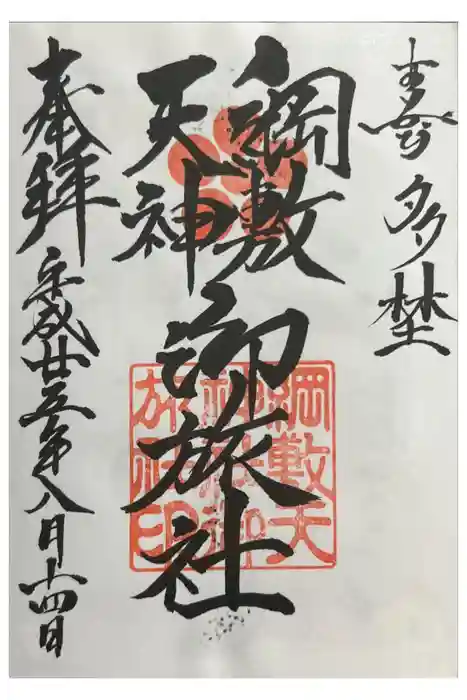 喜多埜
綱敷
天神
御旅社
奉拝
平成廿三年八月十四日
綱敷天
神社御
旅社印